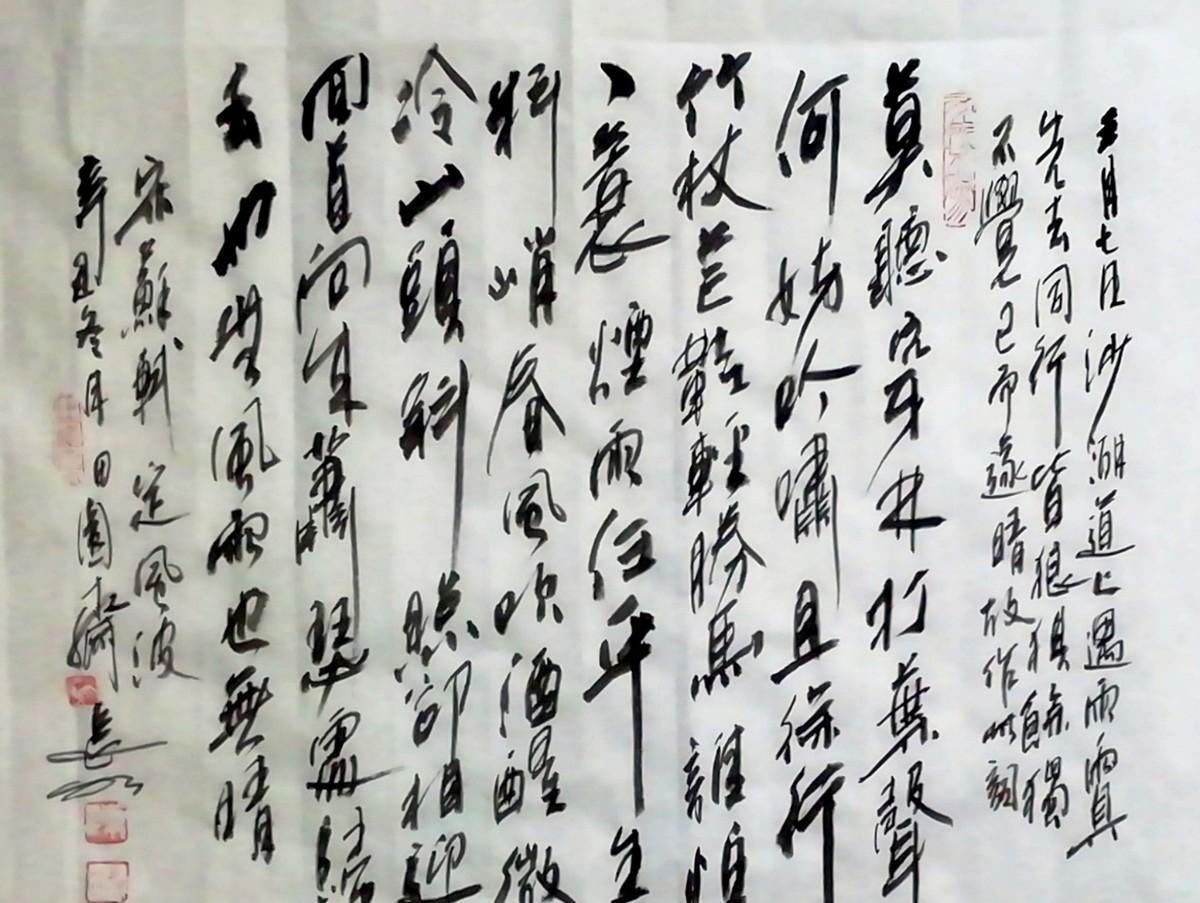 三月七日沙湖道上遇雨雨具
先去同行皆狼狽餘獨
不覺已而遂晴故作此詞
莫聽穿林打葉聲
何妨吟嘯且徐行
竹杖芒鞋輕勝馬誰怕
一蓑煙雨任平生
料峭春風吹酒醒微
冷山頭斜照卻相迎
回首向來蕭瑟處歸
去也無風雨也無晴
宋蘇軾 定風波
辛丑冬月田園齋